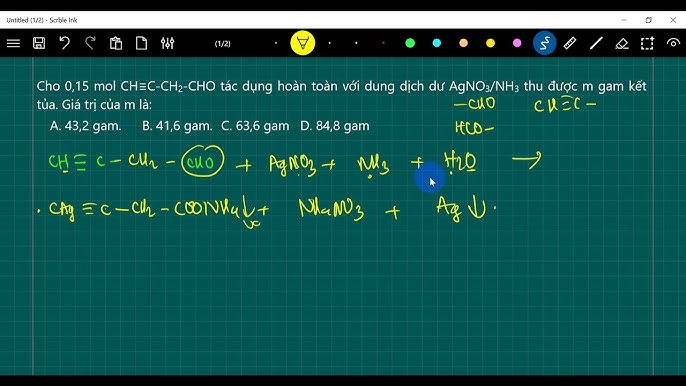 Untitled (1/2) - Scrble Ink
(1/2)
Cho 0,15 mol CH≡C-CH₂-CHO tác dụng hoàn toàn với dung dịch dư AgNO₃/NH₃ thu được m gam kết
tủa. Giá trị của m là:
—CHO CH≡C—
HCO—
A. 43,2 gam. B. 41,6 gam. C. 63,6 gam D. 84,8 gam
CH≡C—CH₂—CHO + AgNO₃ + NH₃ + H₂O →
CAg≡C—CH₂—COONH₄↓ + NH₄NO₃ + Ag↓